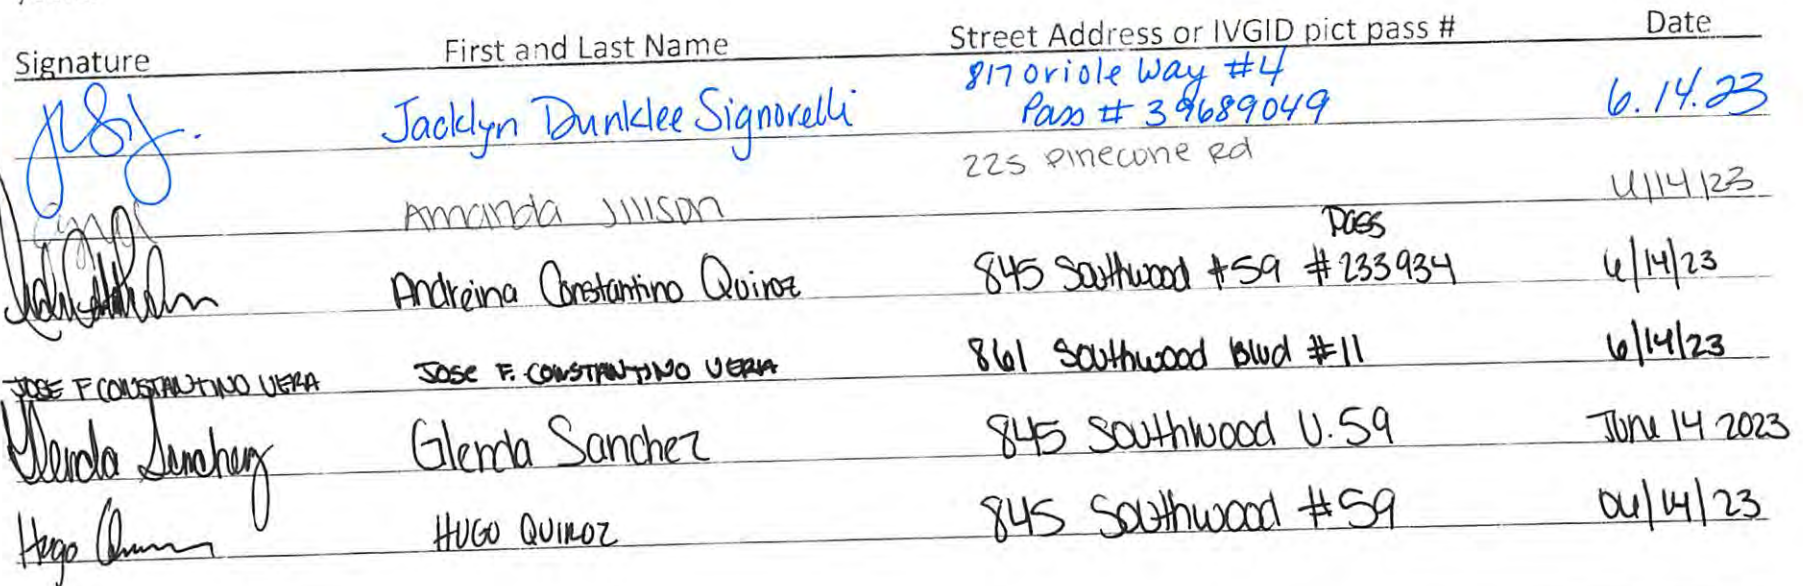 Signature First and Last Name Street Address or IVGID pict pass # Date
817 Oriole Way #4
Jacklyn Dunklee Signorelli Pass # 39689049 6.14.23
225 Pinecone Rd
Amanda Jillson 6/14/23
Pass
Andreina Constantino Quiroz 845 Southwood #59 #233934 6/14/23
JOSE F CONSTANTINO VERA JOSE F. CONSTANTINO VERA 861 Southwood Blvd #11 6/14/23
Glenda Sanchez Glenda Sanchez 845 Southwood U.59 June 14 2023
Hugo HUGO QUIROZ 845 Southwood #59 06/14/23